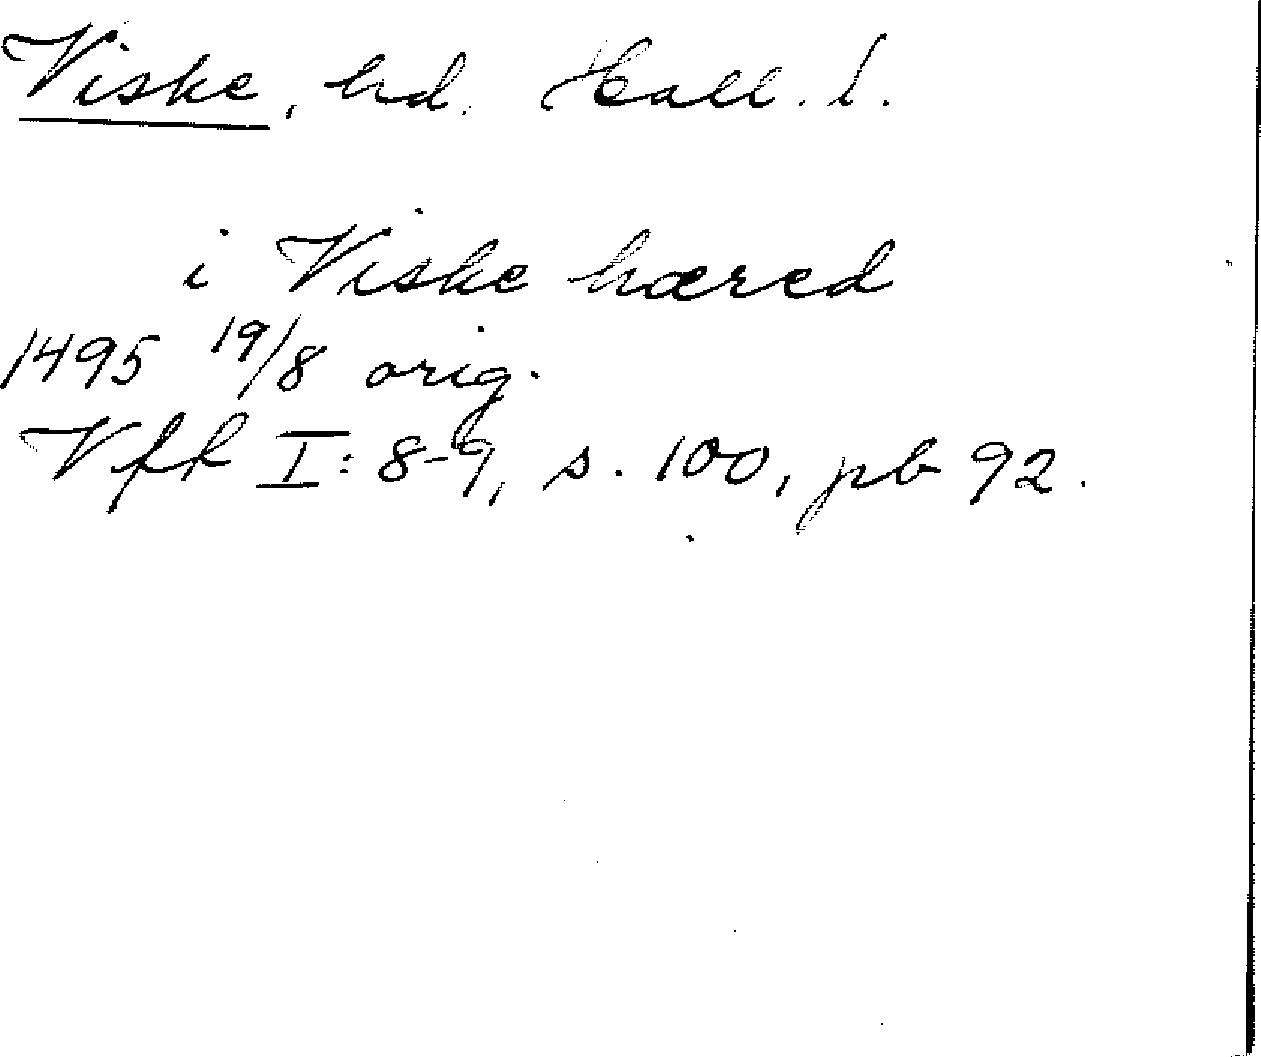 Viske, hd. Hall. l.
i Viske hæred
1495 19/8 orig.
Vfk I: 8-9, s. 100, pb 92.